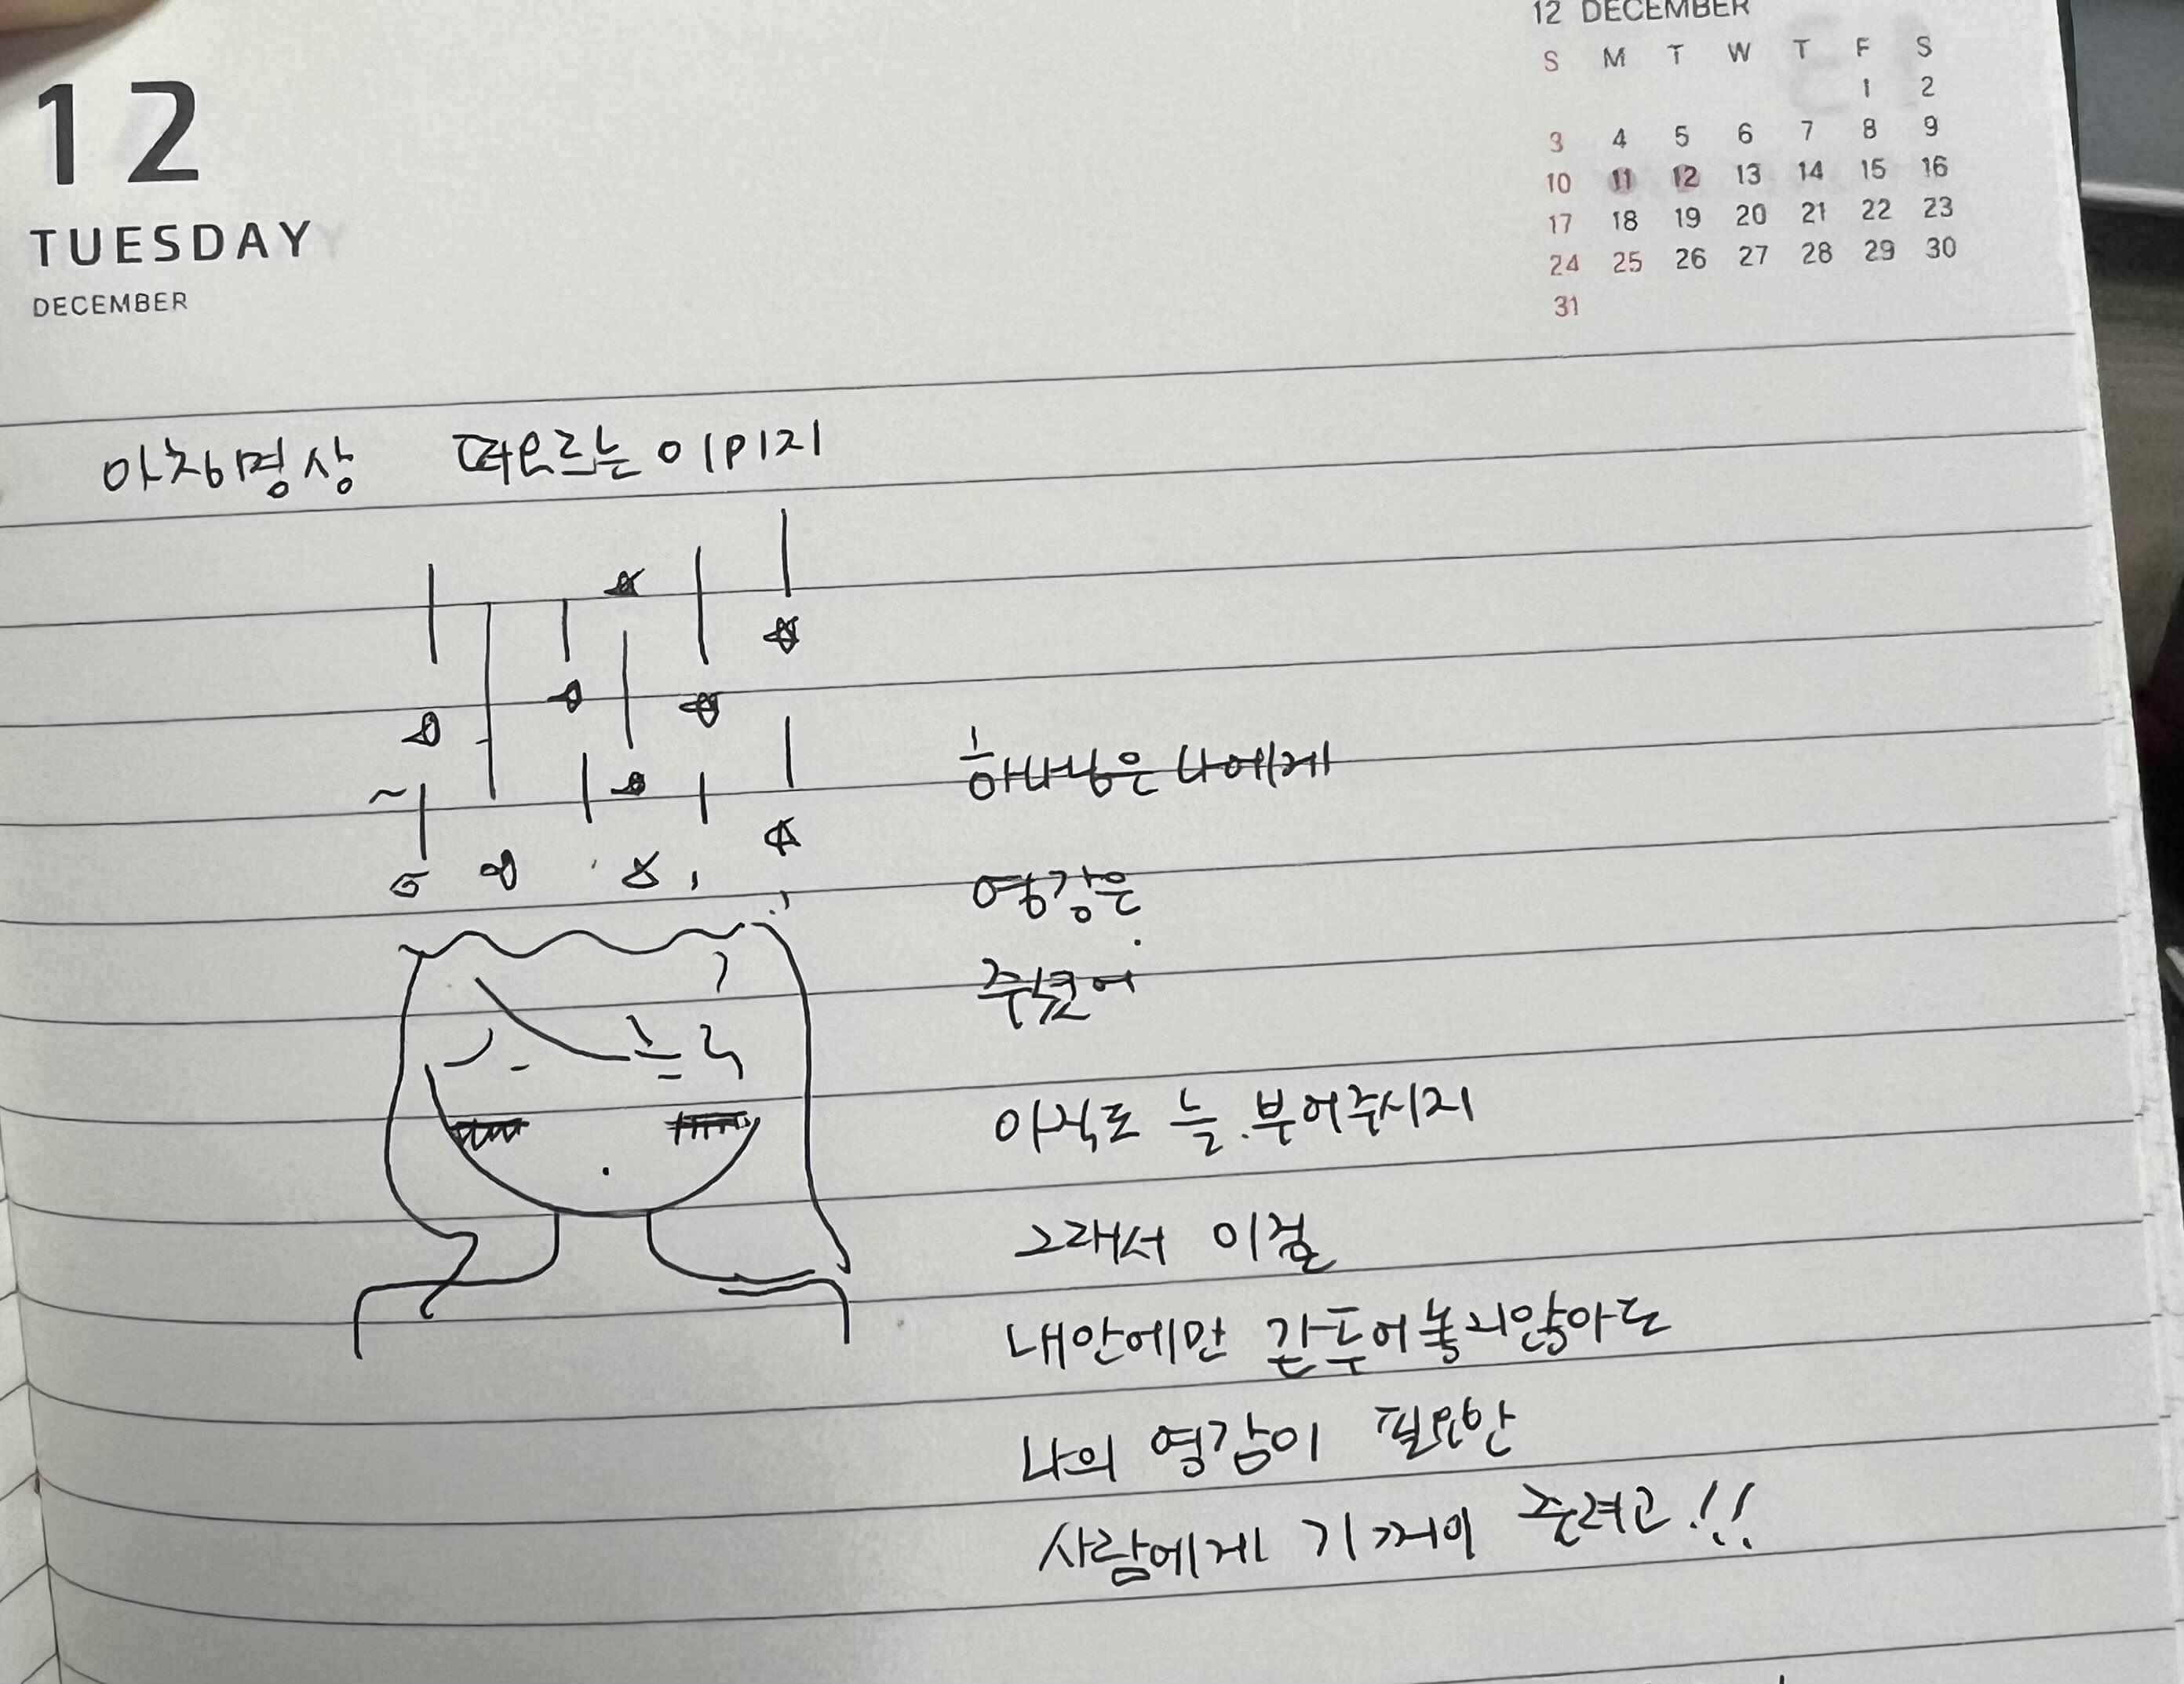 12
TUESDAY
DECEMBER
12 DECEMBER
S M T W T F S
1 2
3 4 5 6 7 8 9
10 11 12 13 14 15 16
17 18 19 20 21 22 23
24 25 26 27 28 29 30
31
아침명상 떠오르는 이미지
하나님은 나에게
영감은
아직도 늘 부어주시지
그래서 이걸
내안에만 가두어놓지않아도
나의 영감이 필요한
사람에게 기꺼이 주려고!!